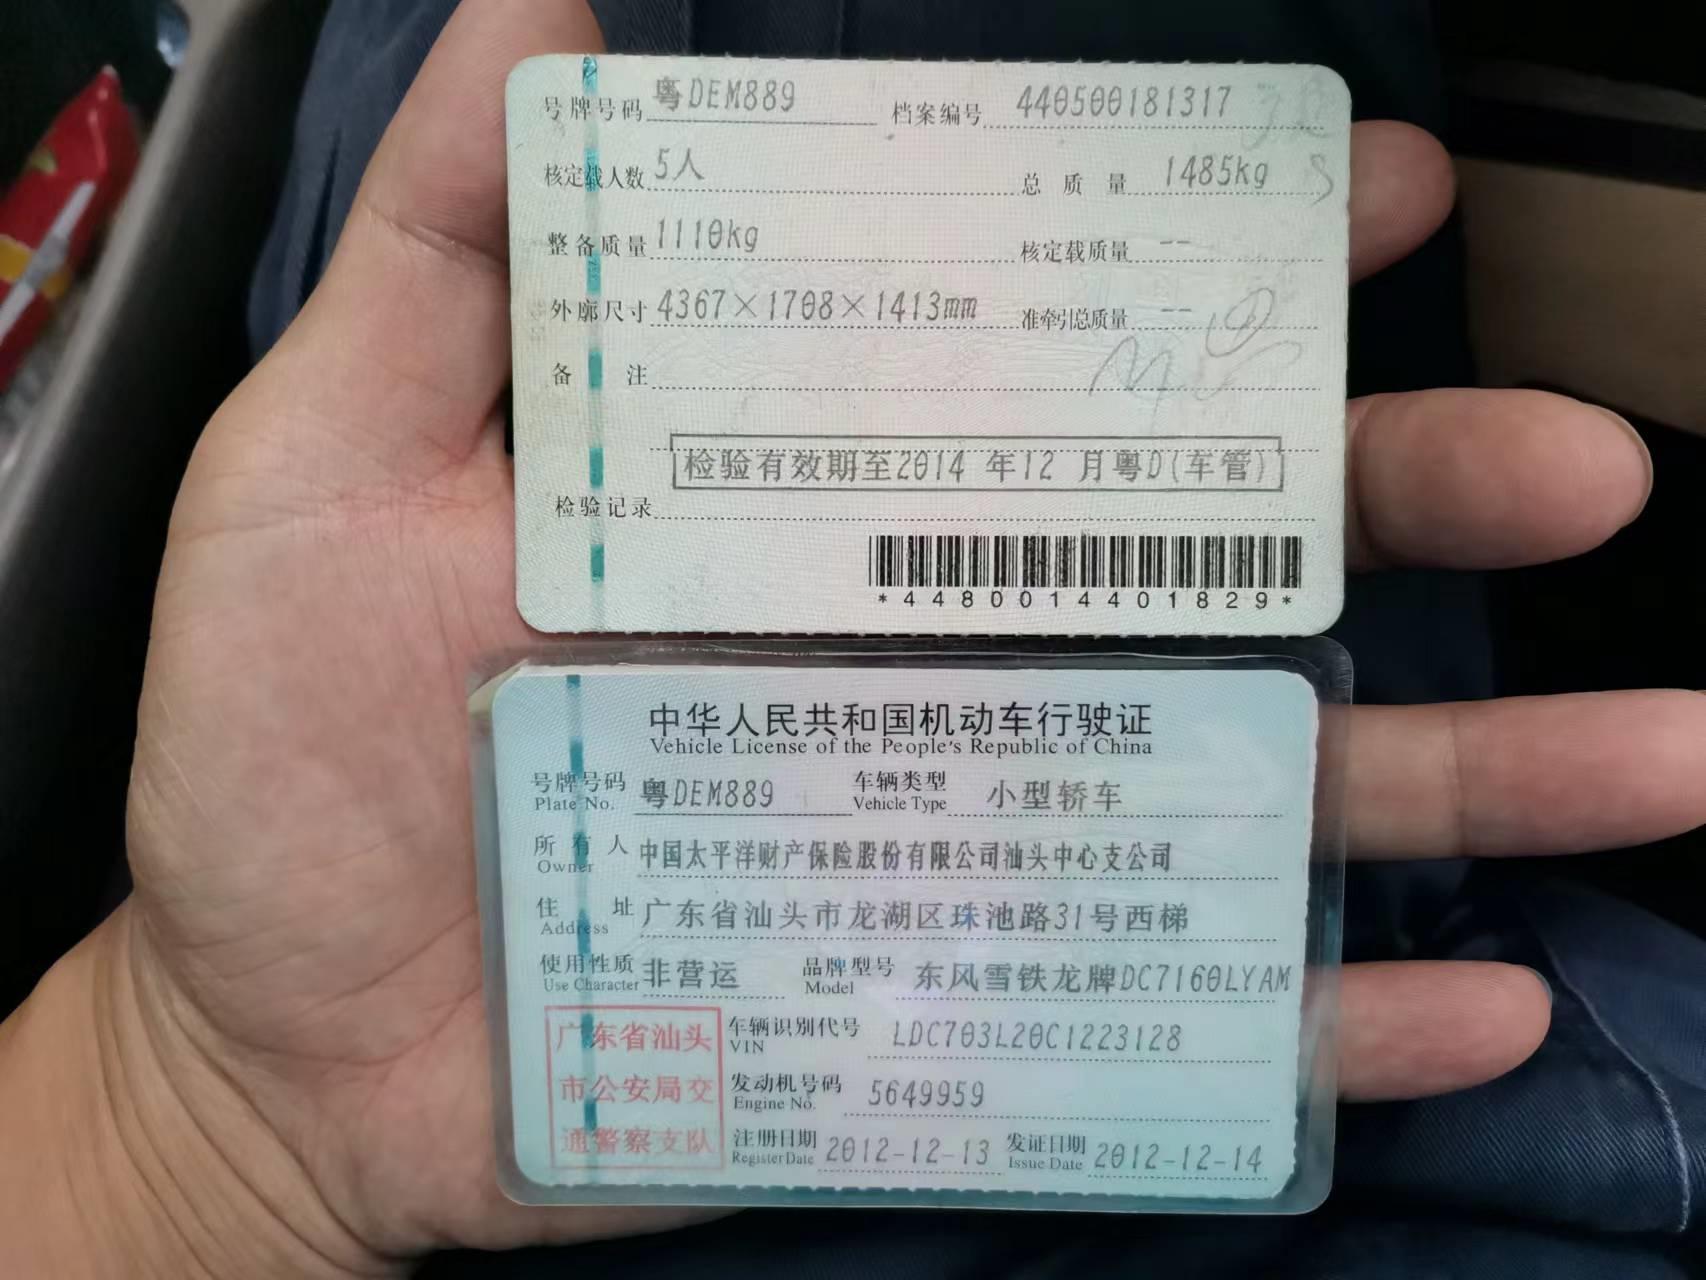 号牌号码 粤DEM889 档案编号 440500181317
核定载人数 5人 总质量 1485kg
整备质量 1110kg 核定载质量 --
外廓尺寸 4367×1708×1413mm 准牵引总质量 --
备注
检验有效期至2014 年12 月粤D(车管)
检验记录
*4480014401829*
中华人民共和国机动车行驶证
Vehicle License of the People's Republic of China
号牌号码 粤DEM889 车辆类型 小型轿车
Plate No. Vehicle Type
所有人 中国太平洋财产保险股份有限公司汕头中心支公司
Owner
住址 广东省汕头市龙湖区珠池路31号西梯
Address
使用性质 非营运 品牌型号 东风雪铁龙牌DC7160LYAM
Use Character Model
广东省汕头
市公安局交
通警察支队
车辆识别代号 LDC703L20C1223128
VIN
发动机号码 5649959
Engine No.
注册日期 2012-12-13 发证日期 2012-12-14
Register Date Issue Date